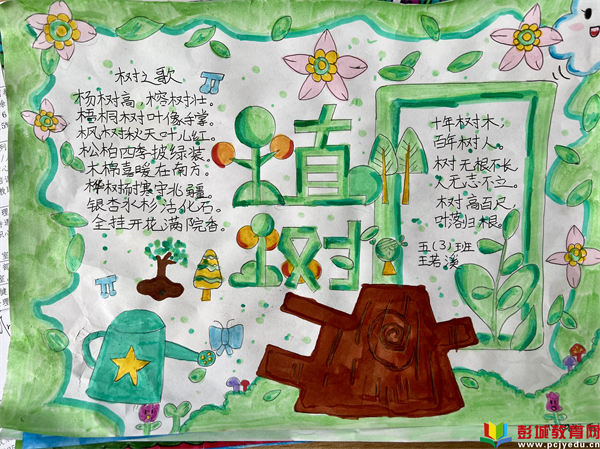 树之歌
杨树高,榕树壮。
梧桐树叶像手掌。
枫树秋天叶儿红。
松柏四季披绿装。
木棉喜暖在南方。
桦树耐寒守北疆。
银杏水杉活化石。
全挂开花满院香。
植
树
十年树木,
百年树人。
树无根不长
人无志不立。
树高百尺
叶落归根。
五(3)班
王若溪
彭城教育网
www.pcjyedu.cn